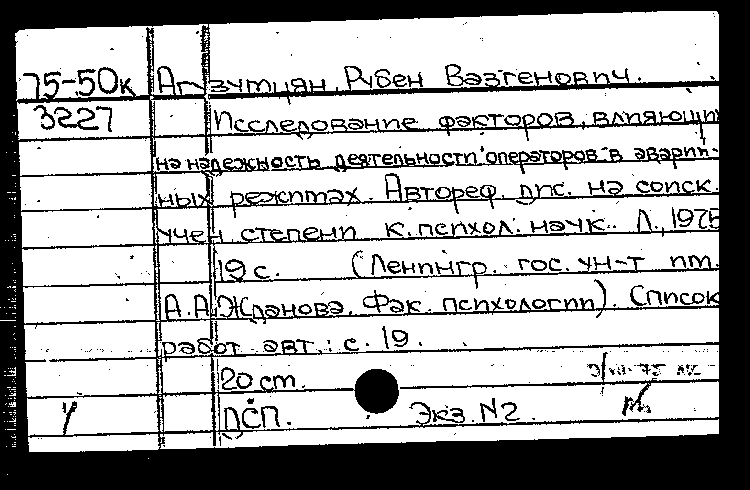 75-50к Агузумцян, Рубен Вазгенович.
3227 Исследование факторов, влияющих
на надежность деятельности операторов в аварий-
ных режимах. Автореф. дис. на соиск.
учен. степени к. психол. наук. Л., 1975
19 с. (Ленингр. гос. ун-т им.
А.А. Жданова. Фак. психологии). Список
работ авт.: с. 19.
20 см.
ДСП. Экз. N2.